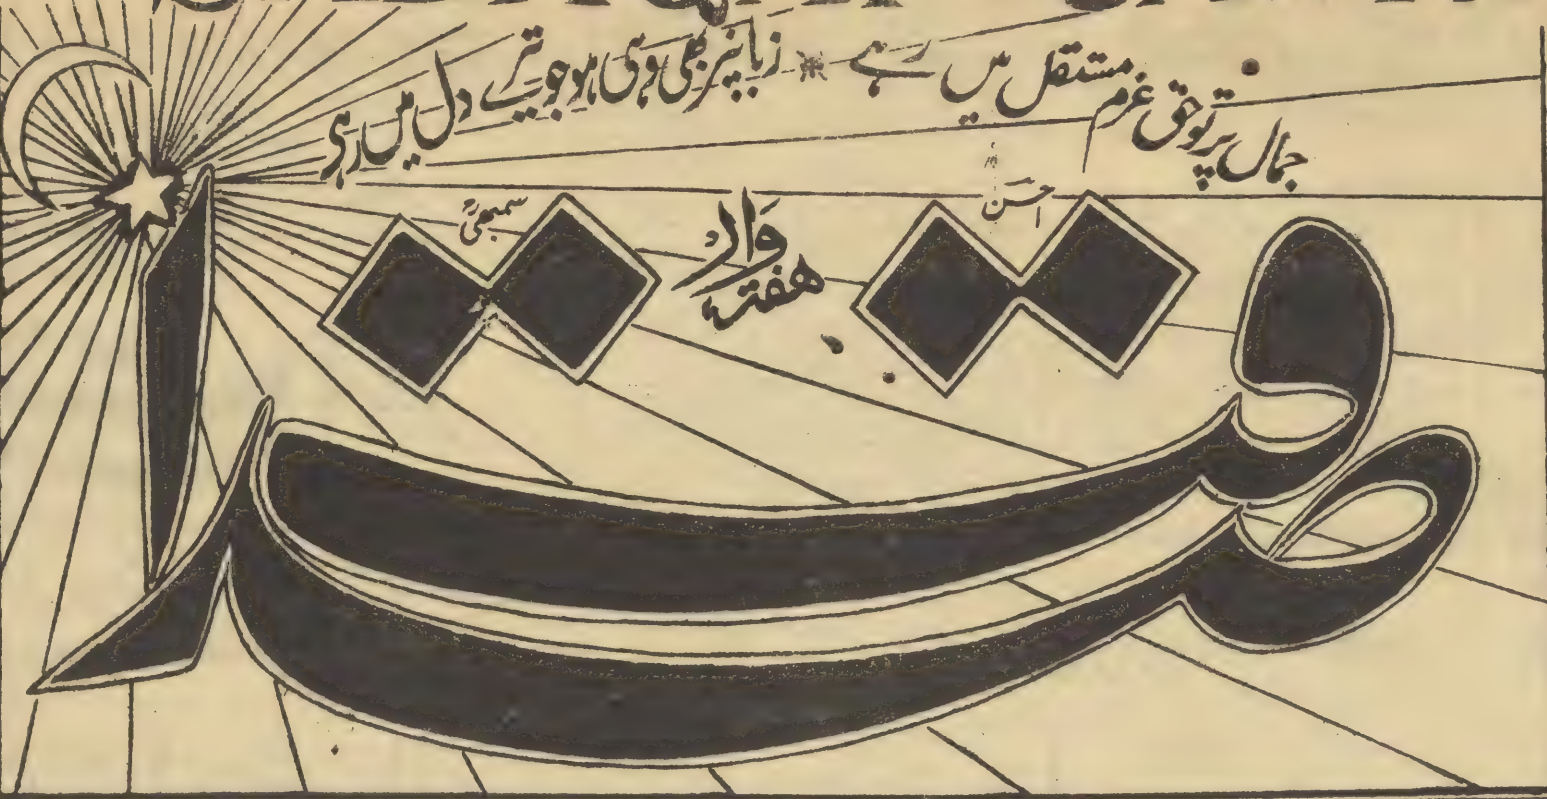 جمال پرتو حق عزم مستقل میں رہے ※ زباں پر بھی وہی ہو جو تیرے دل میں رہی
احسن
ہفتہ وار
صداقت